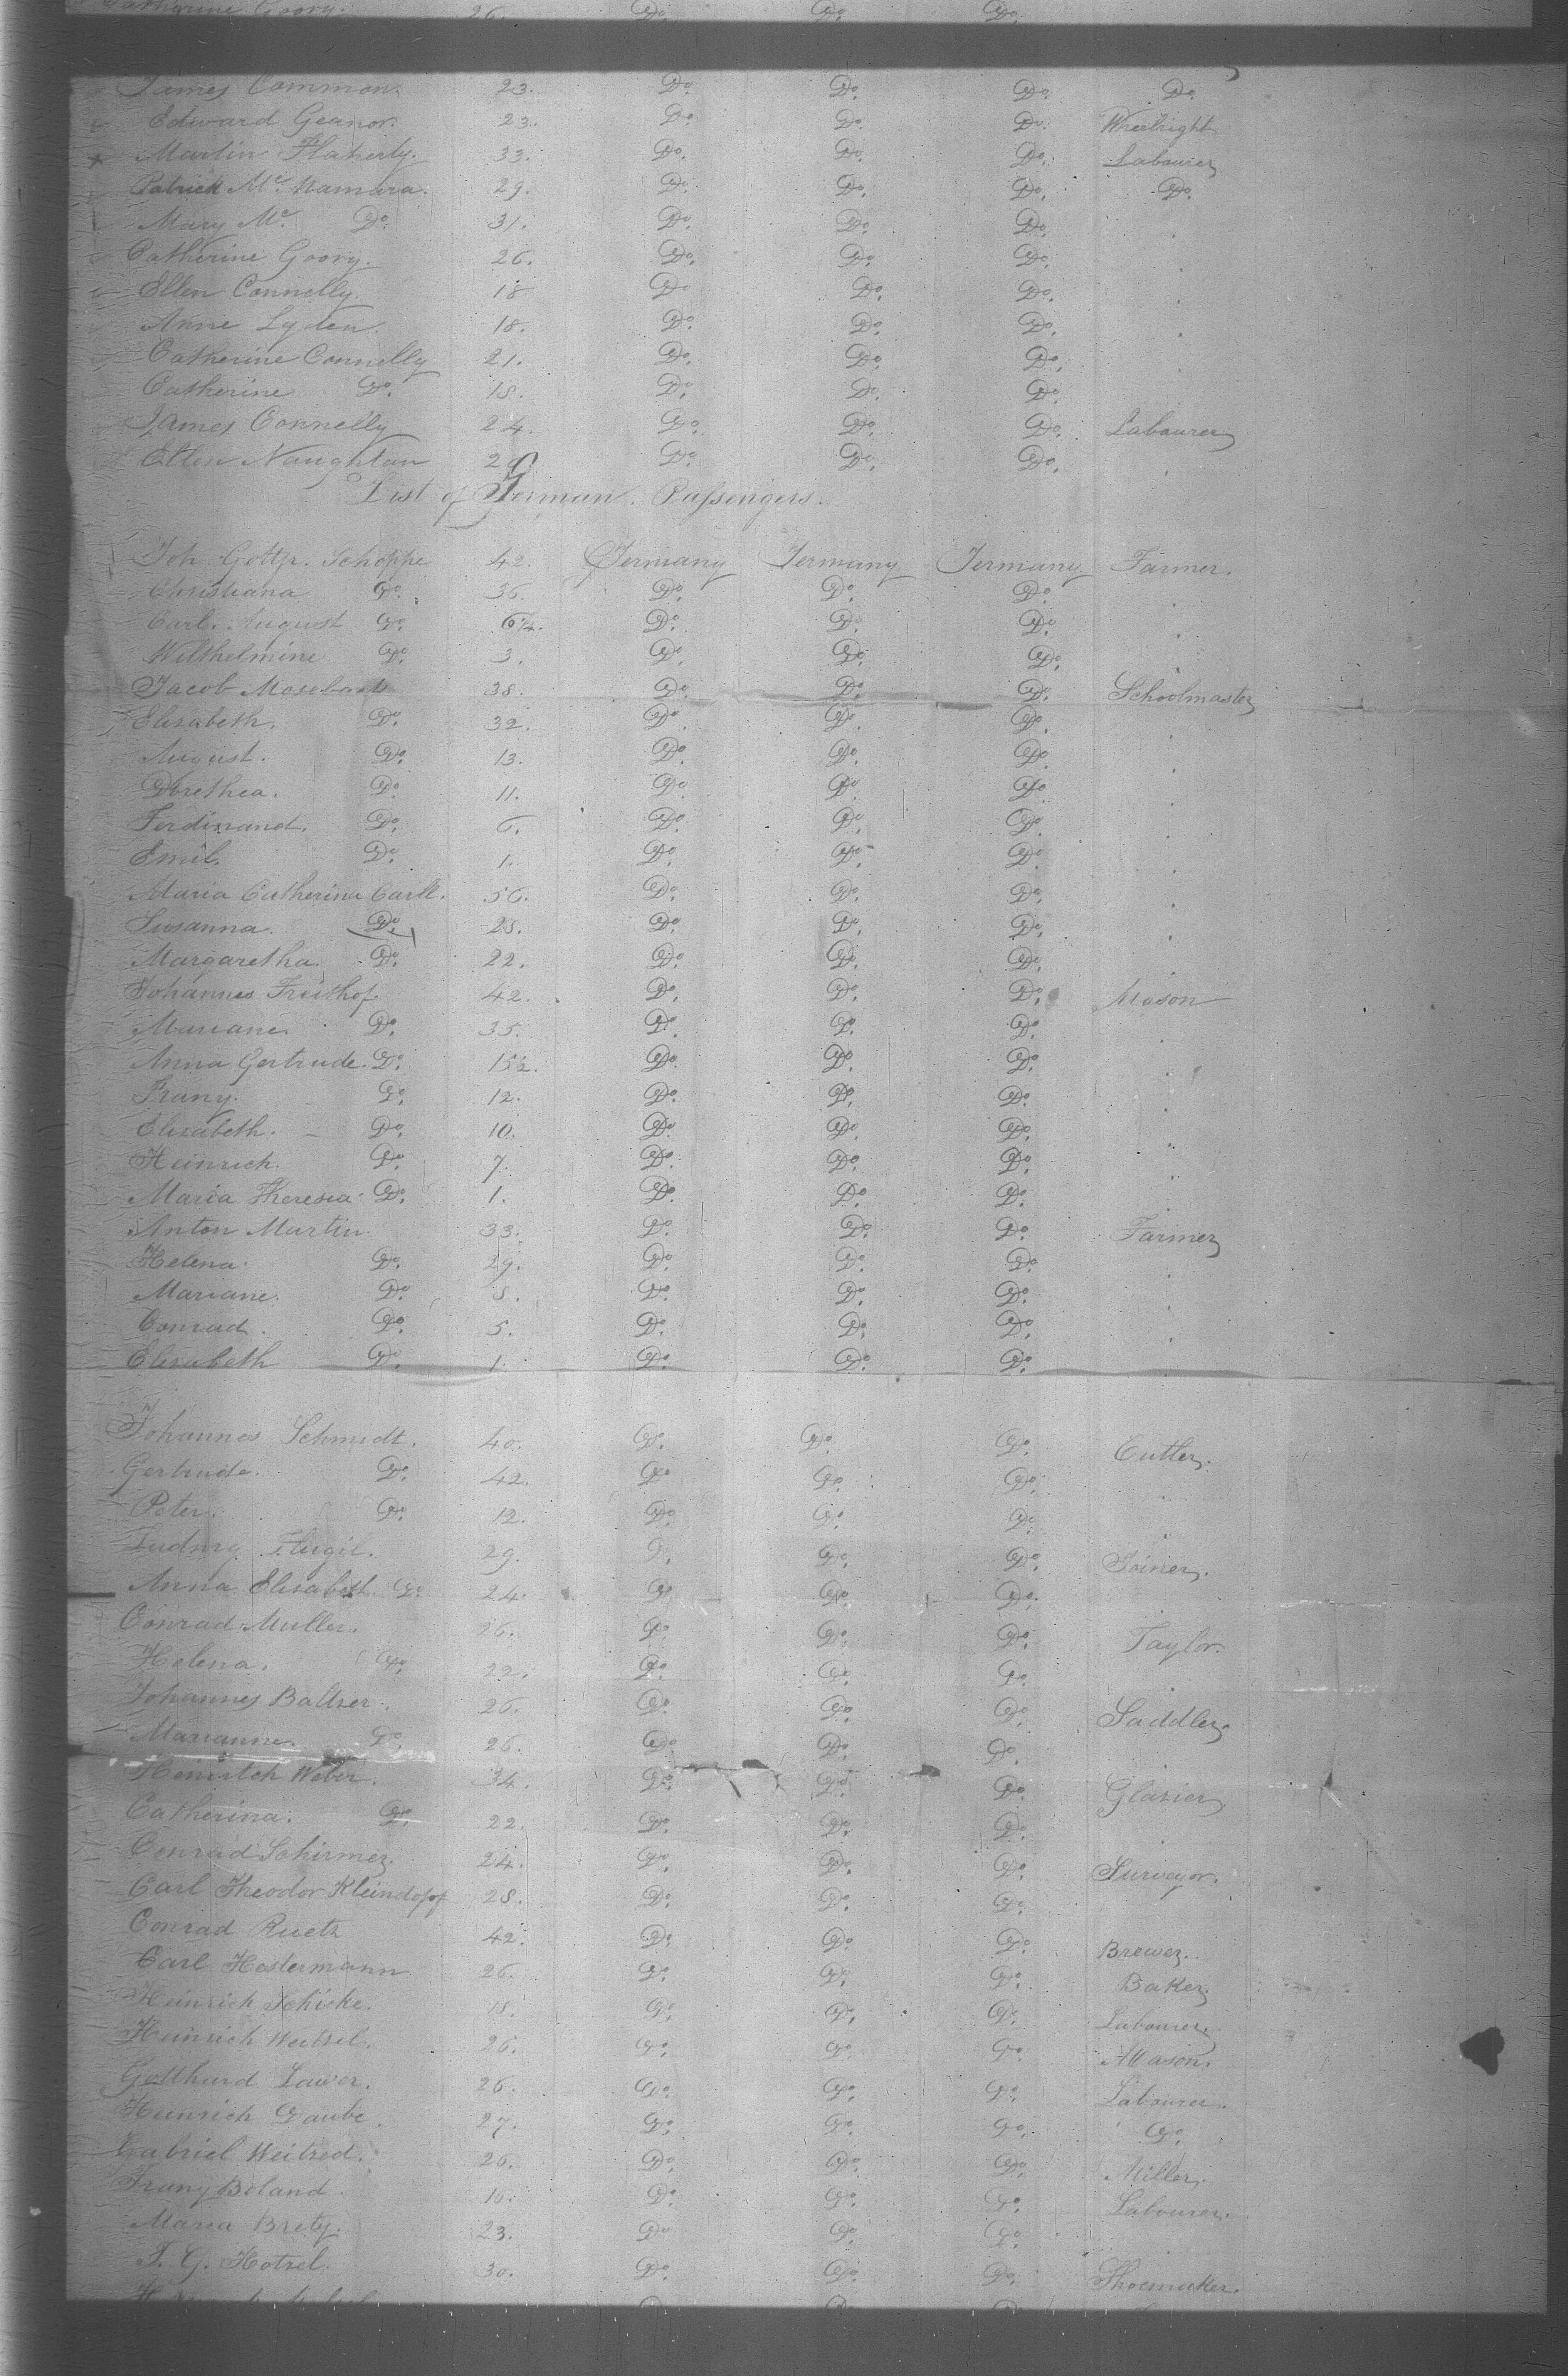 Catherine Goory. 26. Do. Do. Do.
James Common. 23. Do. Do. Do. Do.
Edward Geanor. 23. Do. Do. Do. Wheelright
Martin Flaherty. 33. Do. Do. Do. Labourer
Patrick Mc. Namara. 29. Do. Do. Do. Do.
Mary Mc. Do. 31. Do. Do. Do.
Catherine Goory. 26. Do. Do. Do.
Ellen Connelly. 18 Do Do. Do.
Anne Lyden. 18. Do. Do. Do.
Catherine Connelly 21. Do. Do. Do.
Catherine Do. 18. Do. Do. Do.
James Connelly 24. Do. Do. Do. Labourer
Ellen Naughtan Do. Do. Do.
List of German. Passengers.
Joh. Gottfr. Schoppe 42. Germany Germany Germany Farmer.
Christiana Do. 36. Do. Do. Do.
Carl. August Do. Do. Do. Do.
Wilhelmine Do. 3. Do. Do. Do.
Jacob 38. Do. Do. Do. Schoolmaster
Elisabeth. Do. 32. Do. Do. Do.
August. Do. 13. Do. Do. Do.
Dorethea. Do. 11. Do. Do. Do.
Ferdinand. Do. 6. Do. Do. Do.
Emil. Do. 1. Do. Do. Do.
Maria Catherina Carll. 56. Do. Do. Do.
Susanna. Do. 28. Do. Do. Do.
Margaretha. Do. 22. Do. Do. Do.
Johannes Freithof. 42. Do. Do. Do. Mason
Mariane. Do. 35. Do. Do. Do.
Anna Gertrude. Do. Do. Do. Do.
Franz. Do. 12. Do. Do. Do.
Elisabeth. Do. 10. Do. Do. Do.
Heinrich. Do. 7. Do. Do. Do.
Maria Theresia Do. 1. Do. Do. Do.
Anton Martin. 33. Do. Do. Do. Farmer
Helena. Do. 29. Do. Do. Do.
Mariane. Do. 8. Do. Do. Do.
Conrad. Do. 5. Do. Do. Do.
Elisabeth Do. 1. Do. Do. Do.
Johannes Schmidt. 40. Do. Do. Do. Cutler.
Gertrude. Do. 42. Do. Do. Do.
Peter. Do. 12. Do. Do. Do.
Ludwig Flugil. 29. Do. Do. Do. Joiner.
Anna Elisabeth Do. 24. Do. Do. Do.
Conrad Muller. 26. Do. Do. Do. Taylor.
Helena. Do. 22. Do. Do. Do.
Johannes Baltzer. 26. Do. Do. Do. Saddler.
Marianne. Do. 26. Do. Do. Do.
Heinrich Weber. 34. Do. Do. Do. Glasier
Catherina. Do. 22. Do. Do. Do.
Conrad Schirmer. 24. Do. Do. Do. Surveyor.
Carl Theodor Kleindopf 28. Do. Do. Do.
Conrad Ruetz 42. Do. Do. Do. Brewer.
Carl Hestermann 26. Do. Do. Do. Baker.
Heinrich Schicke. 18. Do. Do. Do. Labourer.
Heinrich Weitzel. 26. Do. Do. Do. Mason.
Gotthard Lawer. 26. Do. Do. Do. Labourer.
Heinrich Daube. 27. Do. Do. Do. Do.
Gabriel Weitzed. 26. Do. Do. Do. Miller.
Franz Boland. 16. Do. Do. Do. Labourer.
Maria Bretz. 23. Do Do. Do.
J. G. Hotzel. 30. Do. Do. Do. Shoemaker.